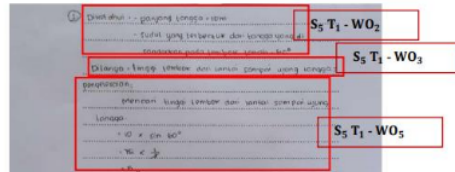 ② Diketahui : - panjang tangga = 10 m
- sudut yang terbentuk dari tangga yang di
sandarkan pada tembok adalah 60°
Ditanya = tinggi tembok dari lantai sampai ujung tangga ?
penyelesaian:
mencari tinggi tembok dari lantai sampai ujung
tangga
= 10 × sin 60°
S₅ T₁ - WO₂
S₅ T₁ - WO₃
S₅ T₁ - WO₅